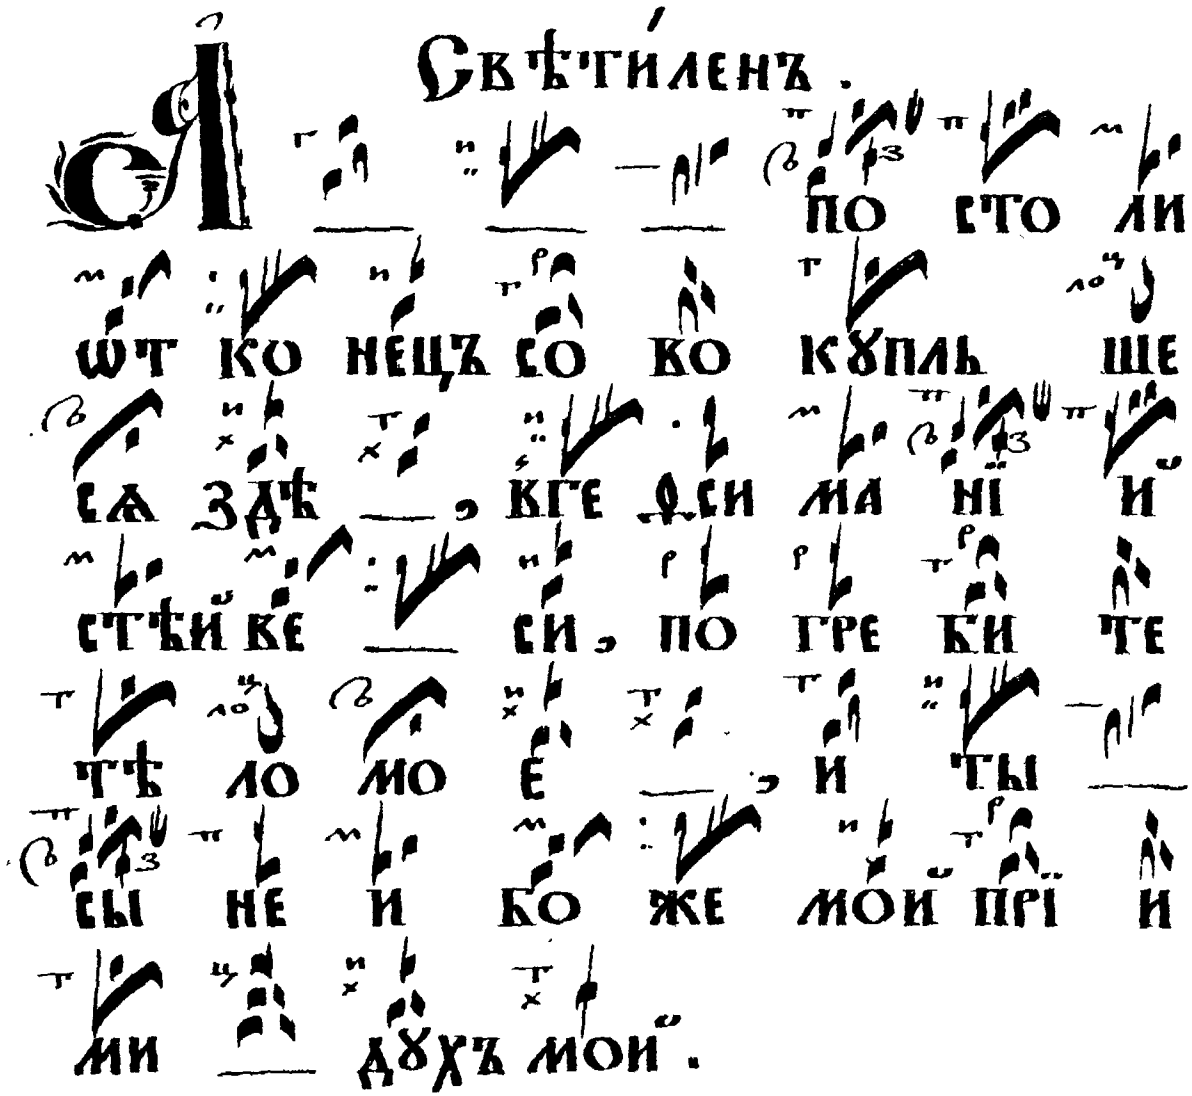 Свѣти́ленъ .
А по сто ли
ѿт ко нецъ со во кꙋпль ше
сѧ здѣ , вге ѳси ма нї й
стѣй ве си , по гре би те
тѣ ло мо е , и ты
сы не и бо же мой прї и
ми дꙋхъ мой .